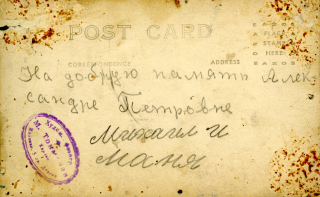 POST CARD
CORRESPONDENCE
ADDRESS
PLACE
STAMP
HERE
На добрую память Алек-
сандре Петровне
Михаил и
Маня